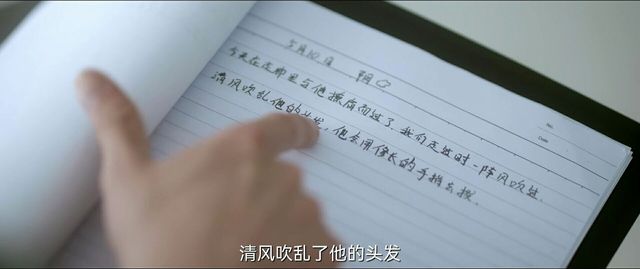 5月10日 阴
No.
Date
今天在走廊里与他擦肩而过了,我们走过时一阵风吹过.
清风吹乱他的头发,他会用修长的手指去拨.
清风吹乱了他的头发